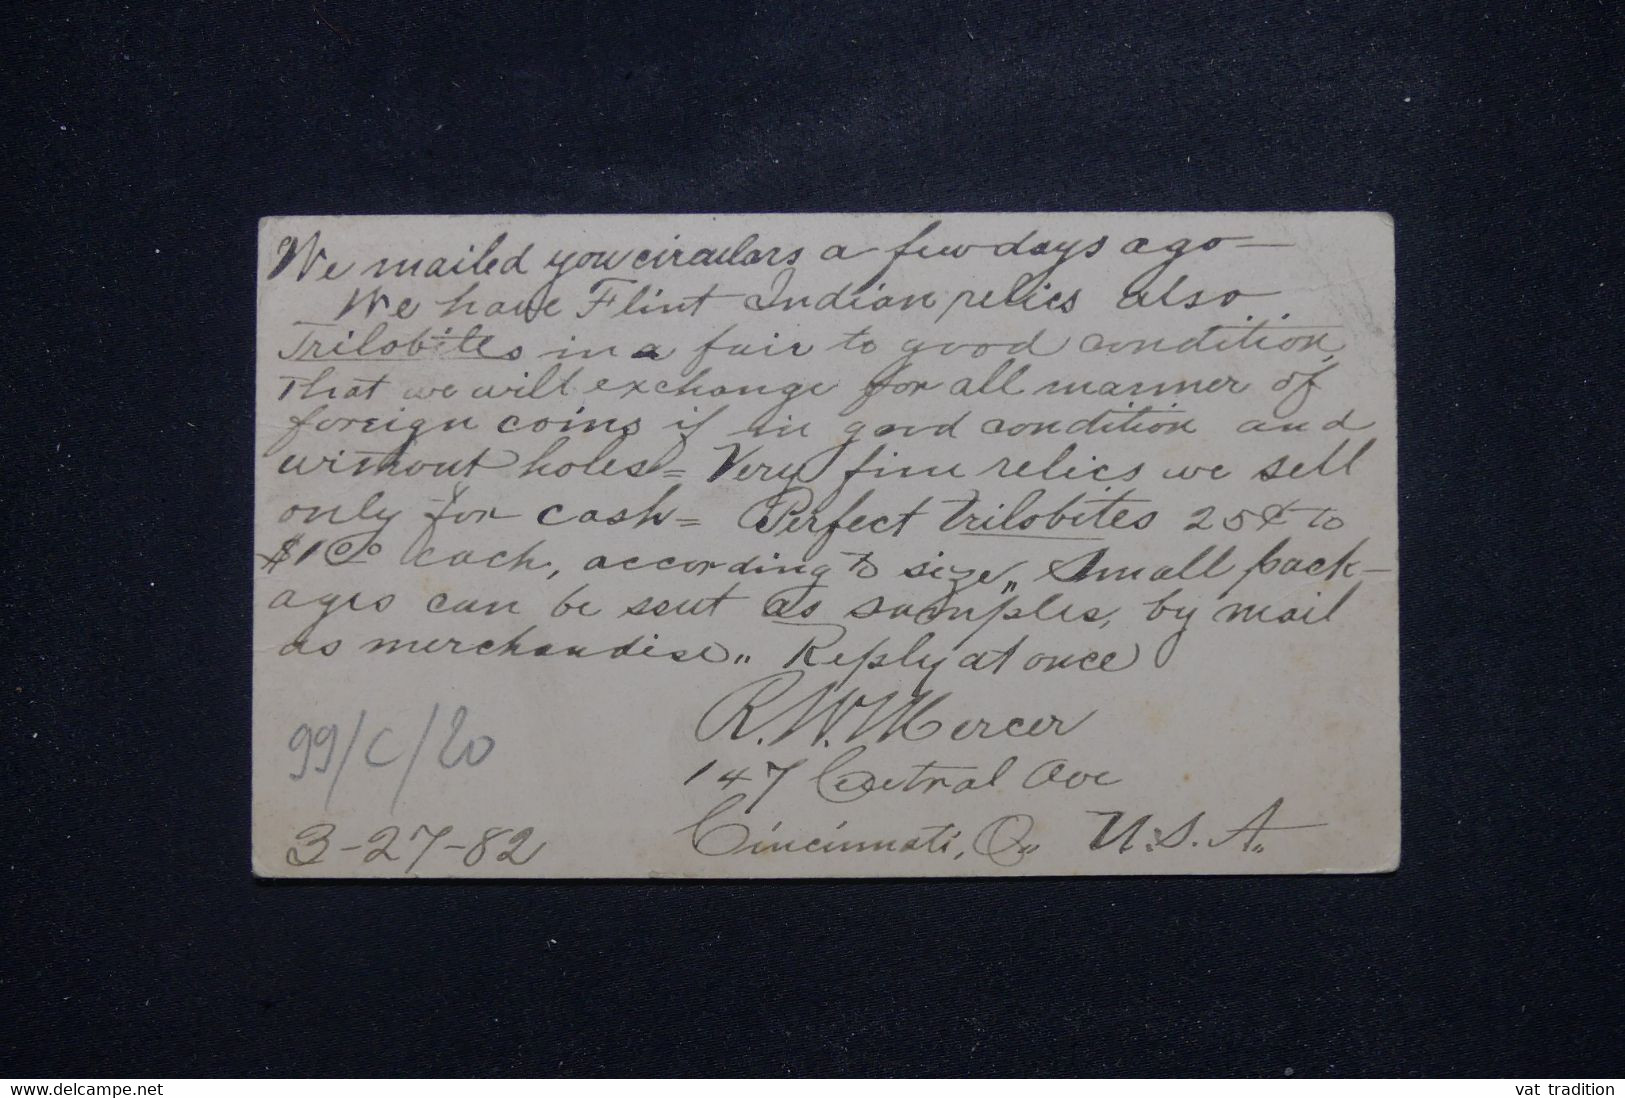 We mailed you circulars a few days ago—
We have Flint Indian relics also
Trilobites in a fair to good condition,
that we will exchange for all manner of
foreign coins if in good condition and
without holes= Very fine relics we sell
only for cash= Perfect trilobites 25¢ to
$1.00 each, according to size,, Small pack-
ages can be sent as samples, by mail
as merchandise,, Reply at once
R. W. Mercer
147 Central Ave
Cincinnati, O,, U.S.A.
99/C/20
3-27-82
www.delcampe.net
vat tradition